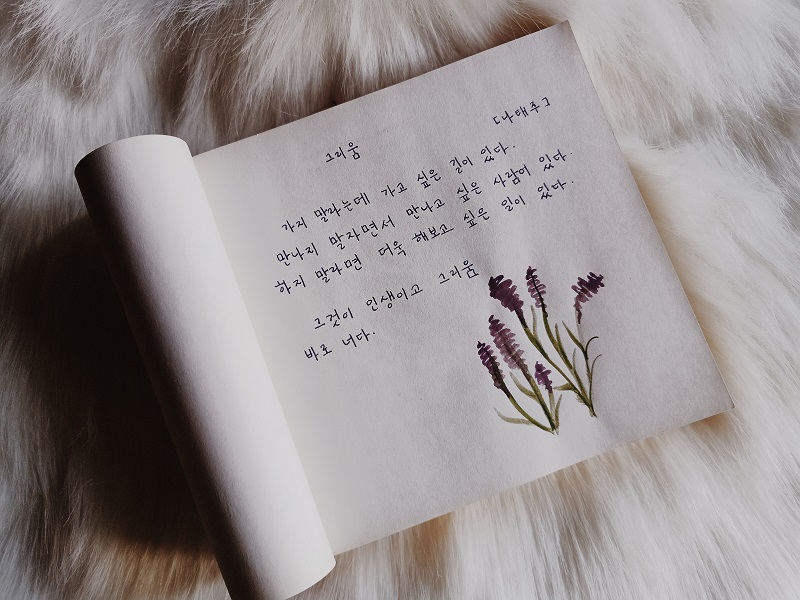 그리움
[나애주]
가지 말라는데 가고 싶은 길이 있다.
만나지 말자면서 만나고 싶은 사람이 있다.
하지 말라면 더욱 해보고 싶은 일이 있다.
그것이 인생이고 그리움
바로 너다.